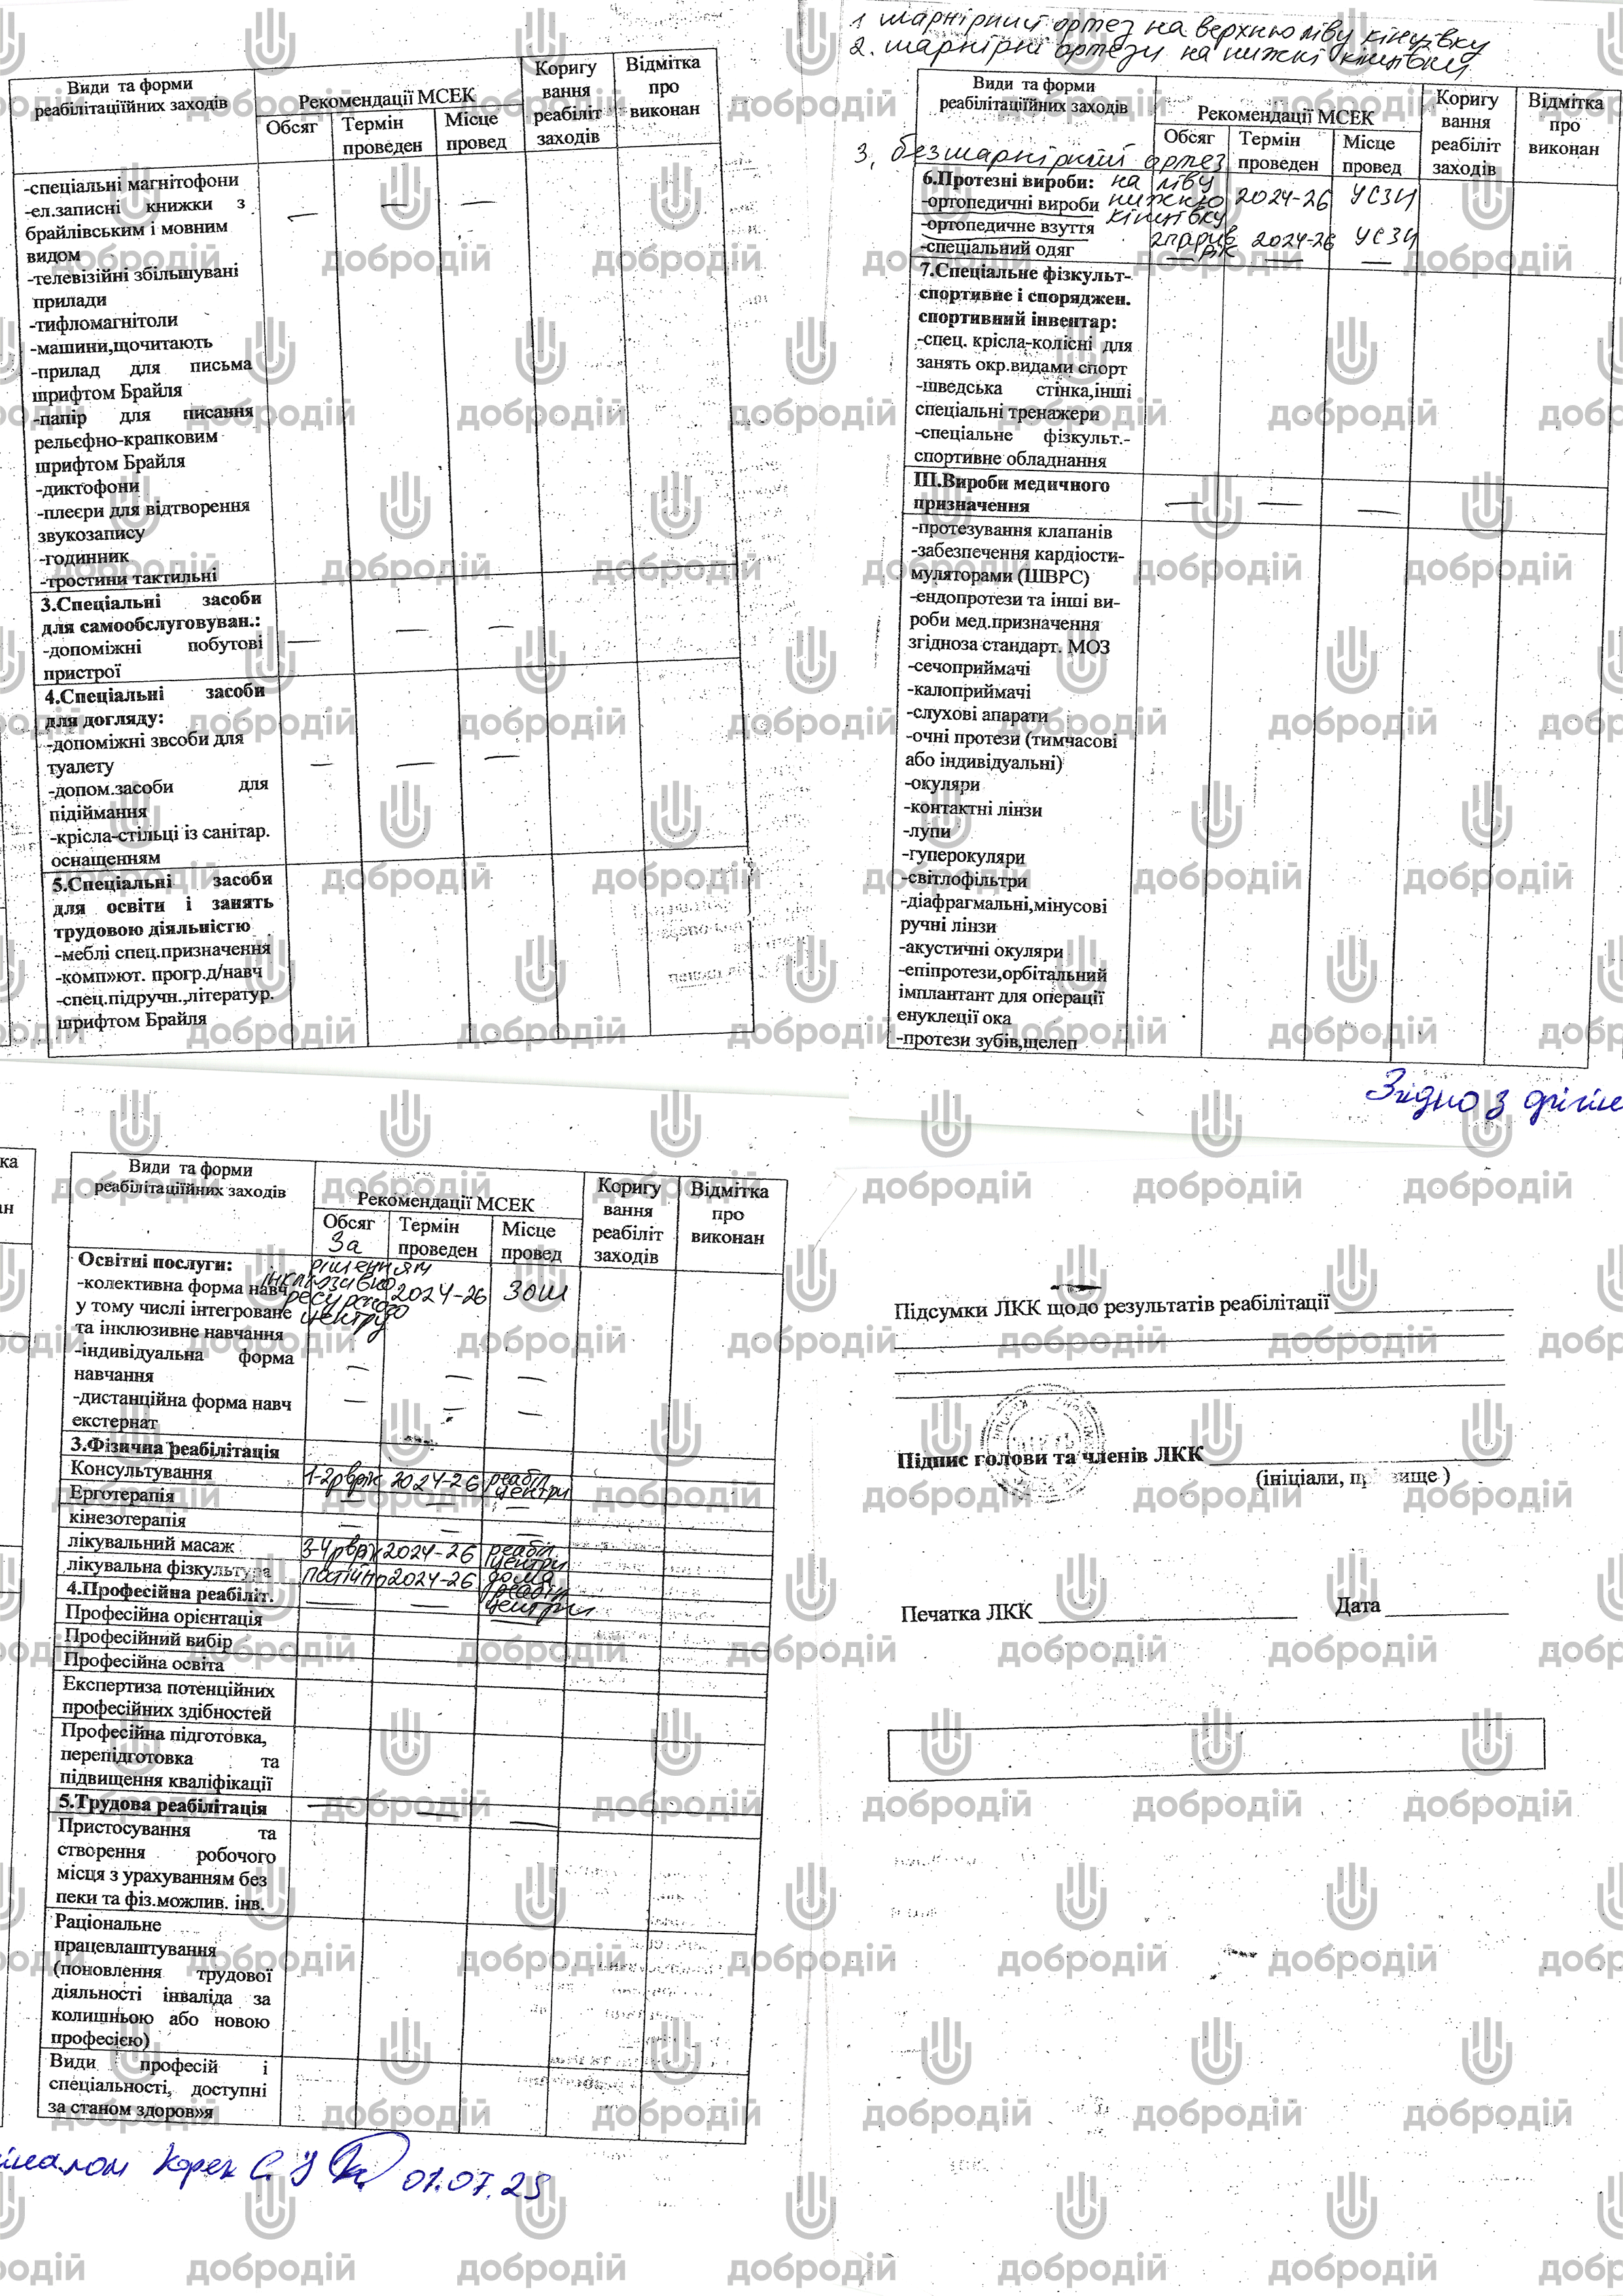 Види та форми
реабілітаційних заходів
Рекомендації МСЕК
Обсяг
Термін
проведен
Місце
провед
Коригу
вання
реабіліт
заходів
Відмітка
про
виконан
-спеціальні магнітофони
-ел.записні книжки з
брайлівським і мовним
видом
-телевізійні збільшувані
прилади
-тифломагнітоли
-машини,щочитають
-прилад для письма
шрифтом Брайля
-папір для писання
рельєфно-крапковим
шрифтом Брайля
-диктофони
-плеєри для відтворення
звукозапису
-годинник
-тростини тактильні
3.Спеціальні засоби
для самообслуговуван.:
-допоміжні побутові
пристрої
4.Спеціальні засоби
для догляду:
-допоміжні звсоби для
туалету
-допом.засоби для
підіймання
-крісла-стільці із санітар.
оснащенням
5.Спеціальні засоби
для освіти і занять
трудовою діяльністю
-меблі спец.призначення
-комп»ют. прогр.д/навч
-спец.підручн.,літератур.
шрифтом Брайля
1 шарнірний ортез на верхню ліву кінцівку
2. шарнірні ортези на нижні кінцівки
Види та форми
реабілітаційних заходів
Рекомендації МСЕК
Обсяг
Термін
проведен
Місце
провед
Коригу
вання
реабіліт
заходів
Відмітка
про
виконан
3. безшарнірний ортез
6.Протезні вироби: на ліву
-ортопедичні вироби нижню 2024-26 УСЗН
кінцівку
-ортопедичне взуття 2 пари в рік 2024-26 УСЗН
-спеціальний одяг
7.Спеціальне фізкульт-
спортивне і споряджен.
спортивний інвентар:
-спец. крісла-колісні для
занять окр.видами спорт
-шведська стінка,інші
спеціальні тренажери
-спеціальне фізкульт.-
спортивне обладнання
ІІІ.Вироби медичного
призначення
-протезування клапанів
-забезпечення кардіости-
муляторами (ШВРС)
-ендопротези та інші ви-
роби мед.призначення
згідноза стандарт. МОЗ
-сечоприймачі
-калоприймачі
-слухові апарати
-очні протези (тимчасові
або індивідуальні)
-окуляри
-контактні лінзи
-лупи
-гуперокуляри
-світлофільтри
-діафрагмальні,мінусові
ручні лінзи
-акустичні окуляри
-епіпротези,орбітальний
імплантант для операції
енуклеції ока
-протези зубів,щелеп
Згідно з
ка
ан
Види та форми
реабілітаційних заходів
Рекомендації МСЕК
Обсяг
Термін
проведен
Місце
провед
Коригу
вання
реабіліт
заходів
Відмітка
про
виконан
За
Освітні послуги: рішенням
-колективна форма навч інклюзивно 2024-26 ЗОШ
у тому числі інтегроване ресурсного
та інклюзивне навчання центру
-індивідуальна форма
навчання
-дистанційна форма навч
екстернат
3.Фізична реабілітація
Консультування 1-2 р в рік 2024-26 реабіл. центри
Ерготерапія
кінезотерапія
лікувальний масаж 3-4 р в рік 2024-26 реабіл. центри
лікувальна фізкультура постійно 2024-26 дома реабіл центри
4.Професійна реабіліт.
Професійна орієнтація
Професійний вибір
Професійна освіта
Експертиза потенційних
професійних здібностей
Професійна підготовка,
перепідготовка та
підвищення кваліфікації
5.Трудова реабілітація
Пристосування та
створення робочого
місця з урахуванням без
пеки та фіз.можлив. інв.
Раціональне
працевлаштування
(поновлення трудової
діяльності інваліда за
колишньою або новою
професією)
Види професій і
спеціальності, доступні
за станом здоров»я
01.07.25
Підсумки ЛКК щодо результатів реабілітації
Підпис голови та членів ЛКК
(ініціали, прізвище)
Печатка ЛКК
Дата
добродій